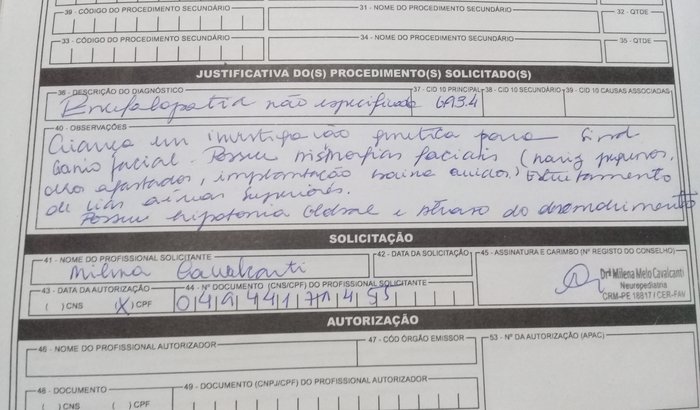 30 - CÓDIGO DO PROCEDIMENTO SECUNDÁRIO
31 - NOME DO PROCEDIMENTO SECUNDÁRIO
32 - QTDE
33 - CÓDIGO DO PROCEDIMENTO SECUNDÁRIO
34 - NOME DO PROCEDIMENTO SECUNDÁRIO
35 - QTDE
JUSTIFICATIVA DO(S) PROCEDIMENTO(S) SOLICITADO(S)
36 - DESCRIÇÃO DO DIAGNÓSTICO
37 - CID 10 PRINCIPAL
38 - CID 10 SECUNDÁRIO
39 - CID 10 CAUSAS ASSOCIADAS
Encefalopatia não especificada G93.4
40 - OBSERVAÇÕES
Criança em investigação genética para Sind
facial. Possui dismorfias faciais (nariz pequeno,
olhos afastados, implantação baixa Estreitamento
de vias aéreas superiores.
Possui hipotonia Global e Atraso do desenvolvimento
SOLICITAÇÃO
41 - NOME DO PROFISSIONAL SOLICITANTE
42 - DATA DA SOLICITAÇÃO
45 - ASSINATURA E CARIMBO (Nº REGISTO DO CONSELHO)
Milena Cavalcanti
43 - DATA DA AUTORIZAÇÃO
44 - Nº DOCUMENTO (CNS/CPF) DO PROFISSIONAL SOLICITANTE
( ) CNS (X) CPF
Drª Milena Melo Cavalcanti
Neuropediatria
CRM-PE 18817 / CER-FAV
AUTORIZAÇÃO
46 - NOME DO PROFISSIONAL AUTORIZADOR
47 - CÓD ÓRGÃO EMISSOR
53 - Nº DA AUTORIZAÇÃO (APAC)
48 - DOCUMENTO
49 - DOCUMENTO (CNPJ/CPF) DO PROFISSIONAL AUTORIZADOR
( ) CNS ( ) CPF